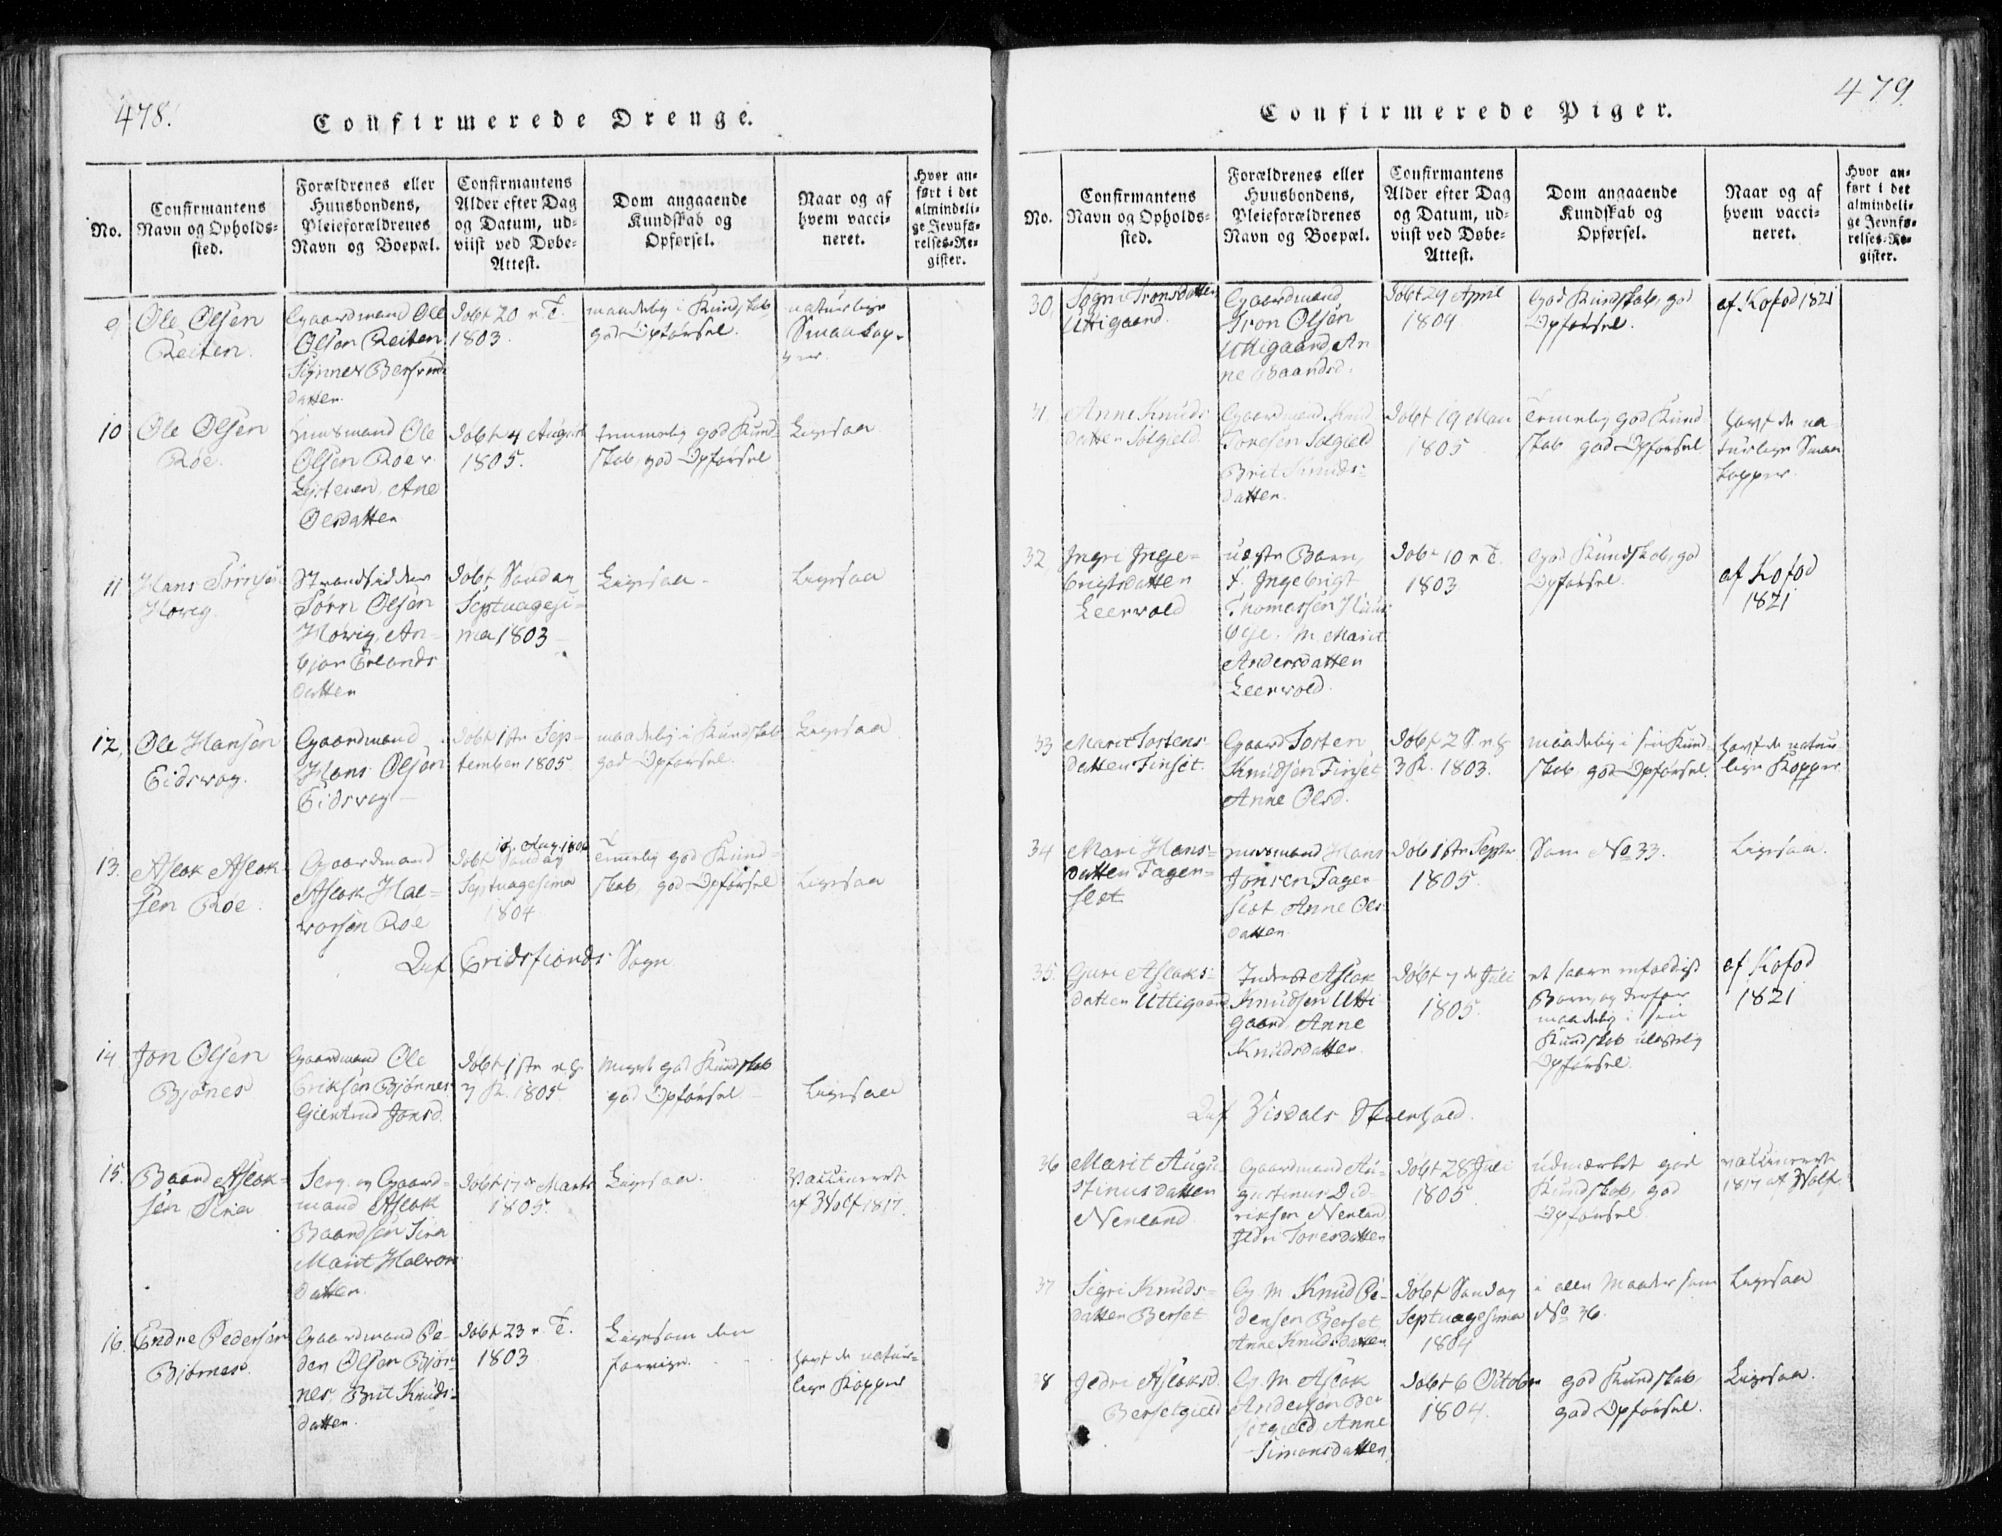 478.
Confirmerede Drenge.
No.
Confirmantens
Navn og Opholds-
sted.
Forældrenes eller
Huusbondens,
Pleieforældrenes
Navn og Boepæl.
Confirmantens
Alder efter Dag
og Datum, ud-
viist ved Døbe-
Attest.
Dom angaaende
Kundskab og
Opførsel.
Naar og af
hvem vacci-
neret.
Hvor an-
ført i det
almindeli-
ge Jevnfø-
relses-Re-
gister.
9
Ole Olsen
Reiten.
Gaardmand Ole
Olsen Reiten
datter.
Døbt 20 n. T.
1803.
maadelig i Kundskab
god Opførsel.
naturlige
Smaakop-
per.
10
Ole Olsen
Roe.
Huusmand Ole
Olsen Roe
Ane
Olsdatter
Døbt 4 August
1805.
temmelig god Kund-
skab, god Opførsel
Ligesaa
11
Hans
Høvig.
Strandsidder
Olsen
Høvig, An-
bjør Erlands
datter
Døbt Søndag
Septuagesi-
ma 1803
Ligesaa
Ligesaa
12.
Ole Hansen
Eidsvag.
Gaardmand
Hans Olsen
Eidsvag
Døbt 1ste Sep-
tember 1805
maadelig i Kundskab
god Opførsel.
Ligesaa
13.
Aslak Aslak-
sen Roe.
Gaardmand
Aslak Hal-
vorsen Roe
Døbt Søndag
Septuagesima
1804
Temmelig god Kund-
skab, god Opførsel
Ligesaa
Af Eridsfiords Sogn
14
Jon Olsen
Bjønes
Gaardmand Ole
Eriksen Bjørnes
Giertrud Jonsd.
Døbt 1ste n. H.
3 K. 1805
Meget god Kundskab
god Opførsel
Ligesaa
15.
Baard Aslak-
sen Sira
Serg. og Gaard-
mand Aslak
Baardsen Sira
Marit Halvors
datter.
Døbt 17de Marts
1805.
Ligesaa.
Vaccineret
af Wolf 1817.
16.
Endre Pedersen
Bjørnes
Gaardmand Pe-
der Olsen Bjør-
nes, Brit Knuds-
datter.
Døbt 23 n. T.
1803
Ligesom den
forrige.
havt de natur-
lige Kopper
479.
Confirmerede Piger.
No.
Confirmantens
Navn og Opholds-
sted.
Forældrenes eller
Huusbondens,
Pleieforældrenes
Navn og Boepæl.
Confirmantens
Alder efter Dag
og Datum, ud-
viist ved Døbe-
Attest.
Dom angaaende
Kundskab og
Opførsel.
Naar og af
hvem vacci-
neret.
Hvor an-
ført i det
almindeli-
ge Jevnfø-
relses-Re-
gister.
30.
Tronsdatter
Uttigaard.
Gaardmand
Tron Olsen
Uttigaard An
ne Baardsd.
Døbt 29 April
1804.
God Kundskab, god
Opførsel.
af Kofod 1821
31
Anne Knuds
datter Solgield
Gaardmand Knud
Toresen Solgield
Brit Knuds-
datter.
Døbt 19 Mai
1805
Temmelig god Kund
skab god Opførsel
havt de na-
turlige Smaa
kopper.
32
Ingri Inge-
brigtsdatter
Leervold
uægte Barn,
F. Ingebrigt
Thomassen
M. Marit
Andersdatter
Leervold.
Døbt 10 n. T.
1803
God Kundskab, god
Opførsel.
af Kofod
1821
33
Marit Tostens-
datter Finset.
Gaard Tosten
Knudsen Finset
Anne Olsd.
Døbt 2 S. n. H.
3 K. 1803.
maadelig i sin Kund-
skab, god Opførsel.
havt de natur-
lige Kopper
34
Mari Hans-
datter Fagen-
slet
Huusmand Hans
Jonsen Fagen-
slet, Anne Ols-
datter.
Døb 1ste Septr
1805.
Som No 33.
Ligesaa.
35.
Guri Aslaks-
datter Uttigaard
Inderst Aslak
Knudsen Utti
gaard, Anne
Knudsdatter
Døbt 7de Juli
1805.
et saare enfoldigt
Barn, og derfor
maadelig i sin
Kundskab ulastelig
Opførsel.
af Kofod
1821
Af Visdals Skolehold.
36
Marit Augu-
stinusdatter
Nerland
Gaardmand Au-
gustinus Did-
riksen Nerland
Jedri Toresdatter
Døbt 28 Juli
1805.
udmærket god
Kundskab, god
Opførsel
vaccineret
1817 af Wolf.
37
Sigri Knuds-
datter Berset
G. M. Knud Pe-
dersen Berset
Anne Knudsdatter
Døbt Søndag
Septuagesima
1804
i allen Maader som
No 36.
Ligesaa
38
Jedri Aslaksd.
Bersetgield
G. M. Aslak
Andersen Ber
setgield, Anne
Simonsdatter
Døbt 6 October
1804.
god Kundskab,
god Opførsel.
Ligesaa.